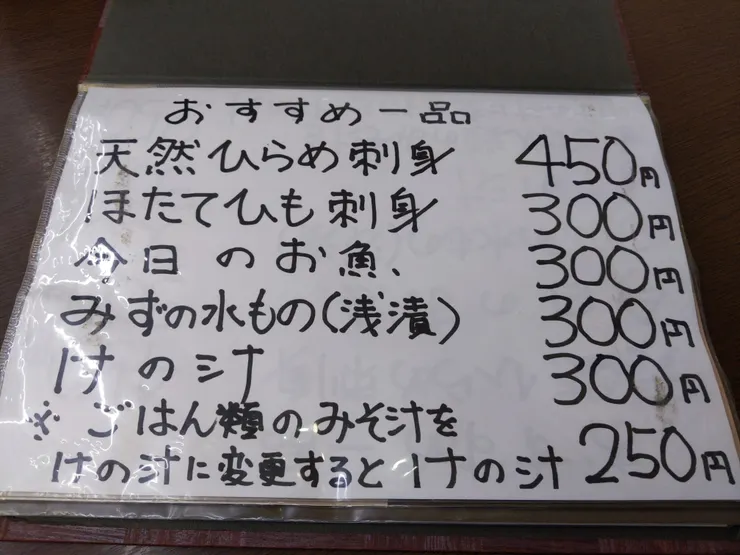 おすすめ一品
天然ひらめ刺身 450円
ほたてひも刺身 300円
今日のお魚、 300円
みずの水もの(浅漬) 300円
けの汁 300円
※ごはん類のみそ汁を
けの汁に変更するとけの汁 250円